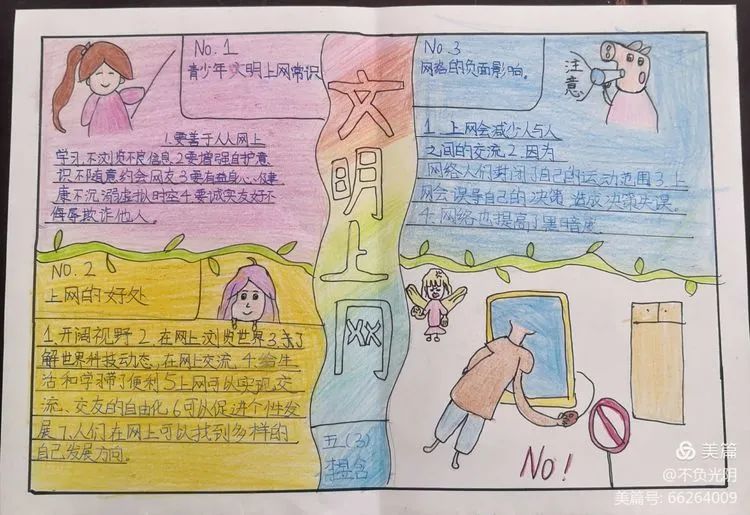 No.1
青少年文明上网常识
1.要善于从网上
学习,不浏览不良信息.2要增强自护意
识不随意约会网友3要有益身心健
康不沉溺虚拟时空4要诚实友好不
侮辱欺诈他人。
No.2
上网的好处
1.开阔视野 2.在网上浏览世界3.
解世界科技动态,在网上交流.4给生
活和学习带了便利5上网可以实现交
流、交友的自由化6可以促进个性发
展7.人们在网上可以找到多样的
自己发展方向。
文
明
上
网
五(3)
No.3
网络的负面影响。
1.上网会减少人与人
之间的交流2.因为
网络人们封闭了自己的运动范围3上
网会误导自己的决策 造成决策失误。
4.网络也提高了
注
意
No!
美篇
@不负光阴
美篇号: 66264009